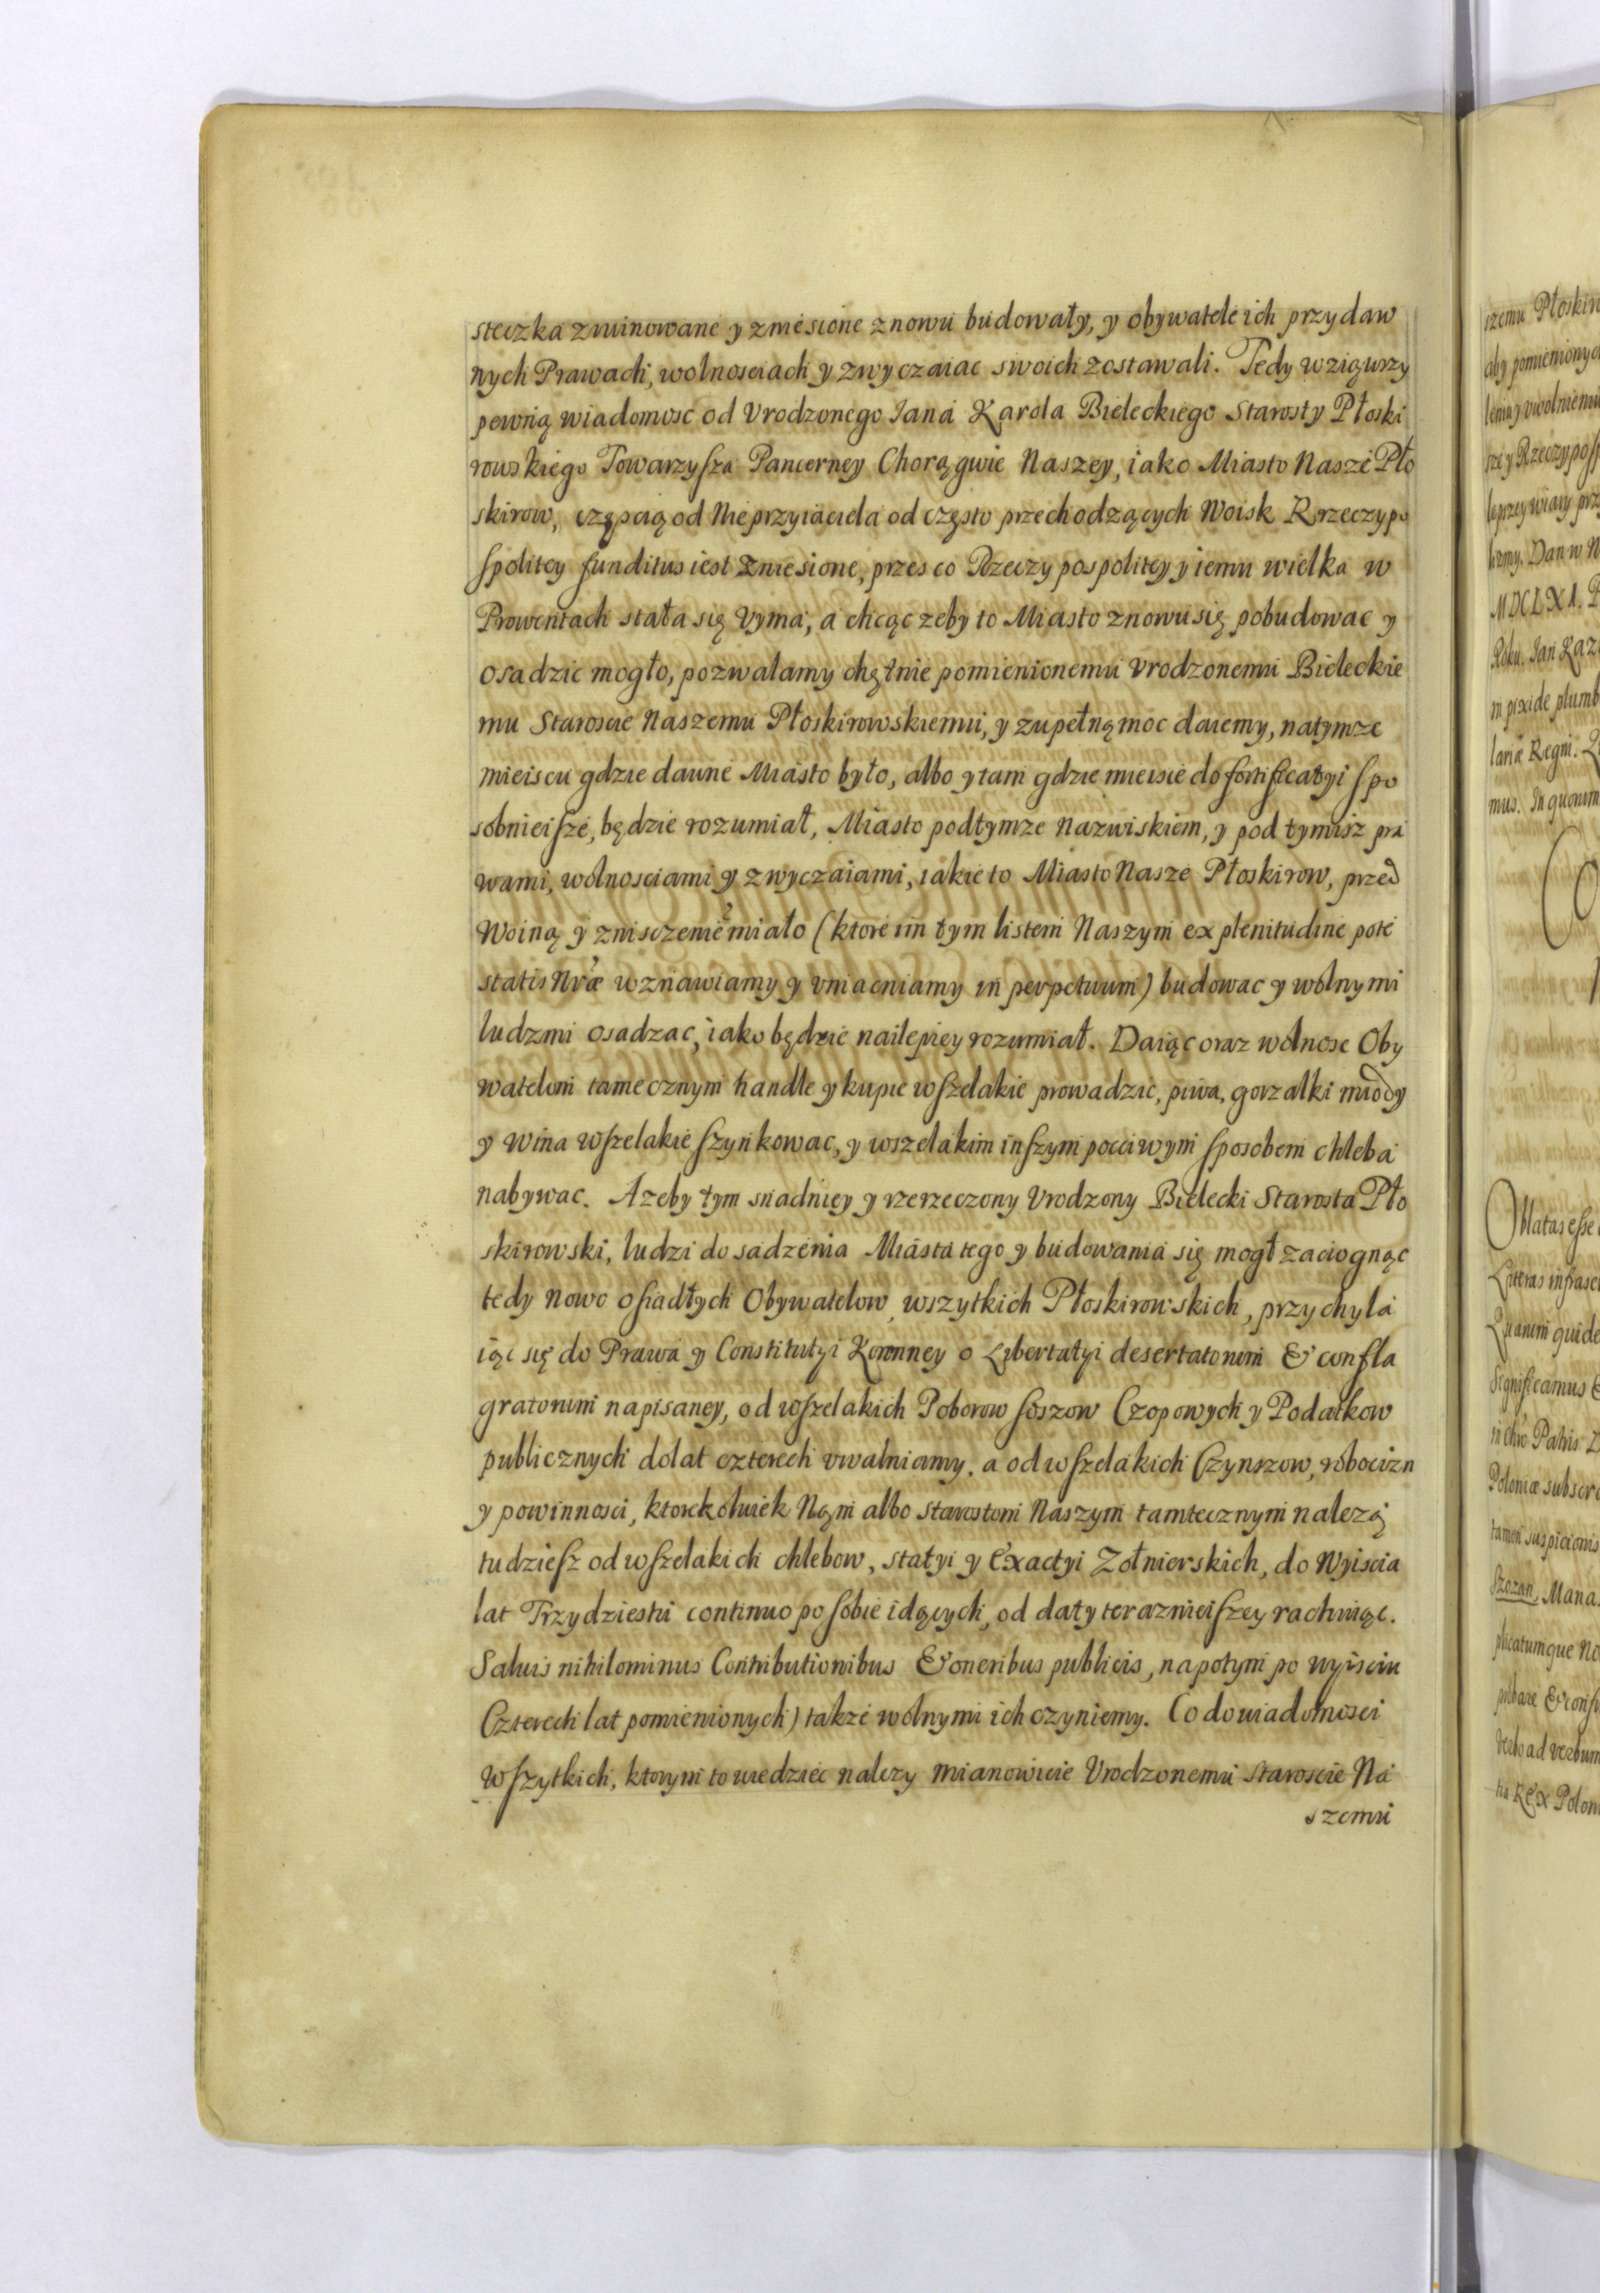 steczka zruinowane y zniesione znowu budowały, y obywatele ich przy daw
nych Prawach, wolnosciach y zwyczaiac swoich zostawali. Tedy wziąwszy
pewną wiadomosc od Vrodzonego Iana Karola Bieleckiego Starosty Płoski
rowskiego Towarzysza Pancerney Chorągwie Naszey, iako Miasto Nasze Pło
skirow, częscią od Nieprzyiaciela od często przechodzących Woisk Rzeczypo
spolitey funditus iest zniesione, przes co Rzeczypospolitey y iemu wielka w
Prowentach stała się Vyma, a chcąc zeby to Miasto znowu się pobudowac y
osadzic mogło, pozwalamy chętnie pomienionemu Vrodzonemu Bieleckie
mu Staroscie Naszemu Płoskirowskiemu, y zupełną moc daiemy, na tymze
mieiscu gdzie dawne Miasto było, albo y tam gdzie mieisce do fortificatyi spo
sobnieisze, będzie rozumiał, Miasto pod tymze nazwiskiem, y pod tymisz pra
wami, wolnosciami y zwyczaiami, iakie to Miasto Nasze Płoskirow, przed
Woiną y zniszczenie miało (ktore im tym listem Naszym ex plenitudine pote
statis Nræ wznawiamy y vmacniamy in perpetuum) budowac y wolnymi
ludzmi osadzac, iako będzie nailepiey rozumiał. Daiąc oraz wolnosc Oby
watelom tamecznym handle y kupie wszelakie prowadzic, piwa, gorzalki miody
y wina wszelakie szynkowac, y wszelakim inszym pocciwym sposobem chleba
nabywac. Azeby tym snadniey y rzerzeczony Vrodzony Bielecki Starosta Pło
skirowski, ludzi do sadzenia Miasta tego y budowania się mogł zaciognąc
tedy nowo osiadłych Obywatelow, wszytkich Płoskirowskich, przychyla
iąc się do Prawa y Constitutyi Koronney o Libertatyi desertatorum & confla
gratorum napisaney, od wszelakich Poborow soszow Czopowych y Podatkow
publicznych do lat czterech vwalniamy, a od wszelakich Czynszow, robocizn
y powinnosci, ktorekolwiek Nam albo starostom Naszym tamtecznym nalezą
tudziesz od wszelakich chlebow, statyi y Exactyi Zołnierskich, do Wyiscia
lat Trzydziestu continuo po sobie idących, od daty teraznieiszey rachuiąc.
Salvis nihilominus Contributionibus & oneribus publicis, napotym po wyisciu
Czterech lat pomienionych) takze wolnymi ich czyniemy. Co do wiadomosci
wszytkich, ktorym to wiedziec nalezy mianowicie Vrodzonemu staroscie Na
szemu